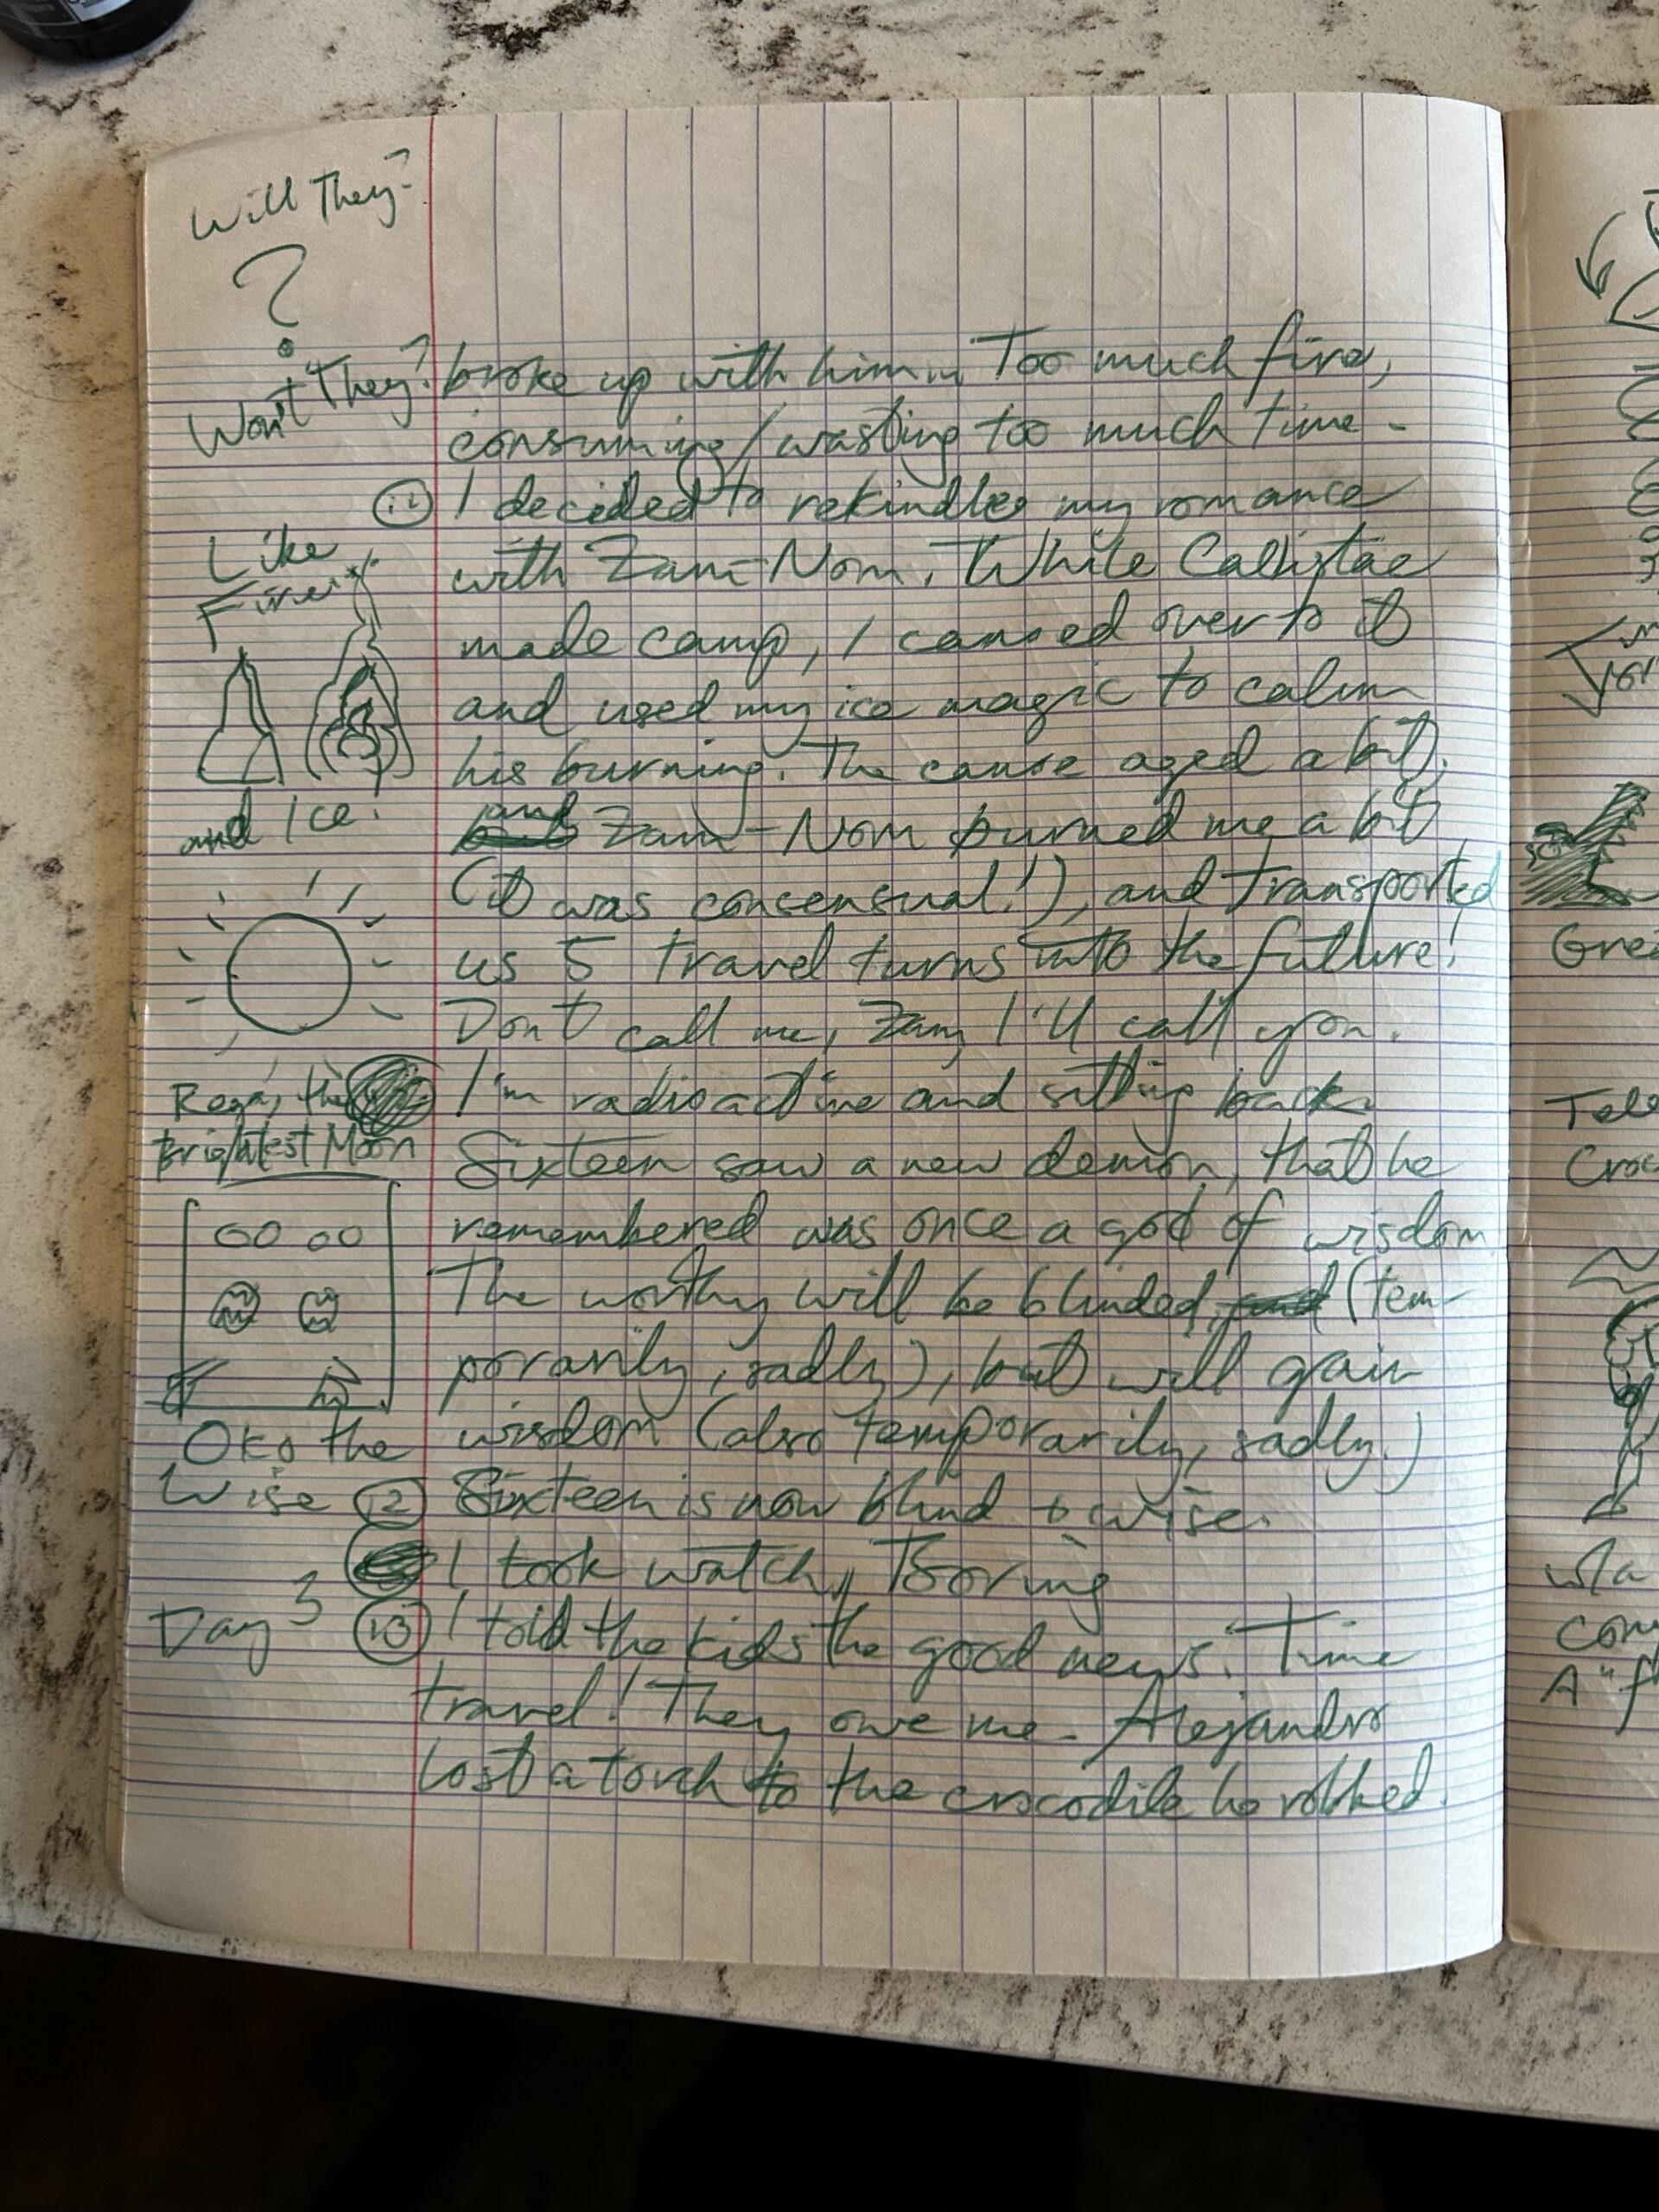 Will They?
?
Won't They?
broke up with him... Too much fire,
consuming/wasting too much time.
11 I decided to rekindle my romance
with Zam-Nom. While Callistae
made camp, I canoed over to it
and used my ice magic to calm
his burning. The canoe aged a bit,
and Zam-Nom burned me a bit
(it was consensual!), and transported
us 5 travel turns into the future!
Don't call me, Zam, I'll call you.
I'm radioactive and sitting back.
Sixteen saw a new demon, that he
remembered was once a god of wisdom
The worthy will be blinded, and (tem-
porarily, sadly), but will gain
wisdom (also temporarily, sadly.)
12 Sixteen is now blind + wise.
I took watch. Boring
13 I told the kids the good news. Time
travel! They owe me. Alejandro
lost a torch to the crocodile he robbed.
Like
Fire
and Ice!
the
Brightest Moon
Oko the
Wise
Day 3
Gre
Tele
Croc
con
A "f